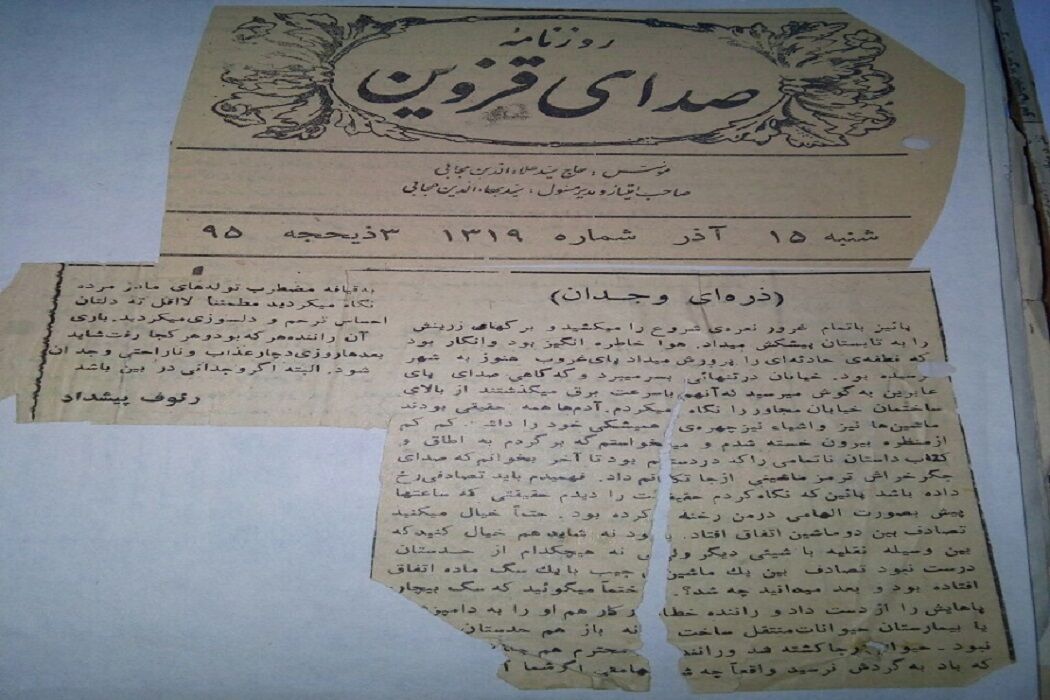 روزنامه
صدای قزوین
مؤسس : حاج سید علاءالدین مجابی
صاحب امتیاز و مدیر مسئول : سید بهاءالدین مجابی
شنبه ۱۵ آذر شماره ۱۳۱۹ ۳ ذیحجه ۹۵
(ذره‌ای وجدان)
پائیز باتمام غرور نعره‌ی شروع را میکشید و برگهای زرینش
را به تابستان پیشکش میداد. هوا خاطره انگیز بود وانگار بود
که نطفه‌ی حادثه‌ای را پرورش میداد پای‌غروب هنوز به شهر
نرسیده بود. خیابان درتنهائی بسرمیبرد و گه‌گاهی صدای پای
عابرین به گوش میرسید که‌آنهم باسرعت برق میگذشتند از بالای
ساختمان خیابان مجاور را نگاه میکردم. آدمها همه حقیقی بودند
ماشین‌ها نیز واشیاء نیزچهره‌ی همیشگی خود را کم کم
ازمنظره بیرون خسته شدم و میخواستم‌که برگردم به اطاق و
کتاب داستان ناتمامی راکه دردستم بود تا آخر بخوانم‌که صدای
جگرخراش ترمز ماشینی ازجا تکانم داد. فهمیدم باید تصادفی‌رخ
داده باشد پائین که نگاه‌کردم را دیدم حقیقتی که ساعتها
پیش بصورت الهامی درمن رخنه کرده بود. حتماً خیال میکنید
تصادف بین دوماشین اتفاق افتاد. نه شایدهم خیال کنیدکه
بین وسیله نقلیه با شیئی دیگر نه هیچکدام از حدستان
درست نبود تصادف بین یك ماشین جیب با یك سگ ماده اتفاق
افتاده بود و بعد میدانید چه شد؟. حتماً میگوئید که سگ بیچاره
پاهایش را از دست داد و راننده هم او را به
یا بیمارستان حیوانات‌منتقل ساخت نه باز هم حدستان
نبود - درجاکشته شد محترم هم
که باد به‌گردش نرسید واقعاً چه اگرشما
به‌قیافه مضطرب توله‌های مادر مرده
نگاه میکردید مطمئناً لااقل ته دلتان
احساس ترحم و دلسوزی‌میکردید. باری
آن راننده‌هرکه‌بودوهرکجا رفت‌شاید
بعدهاروزی‌دچارعذاب وناراحتی وجدان
شود. البته اگروجدانی در بین باشد
رئوف پیشداد